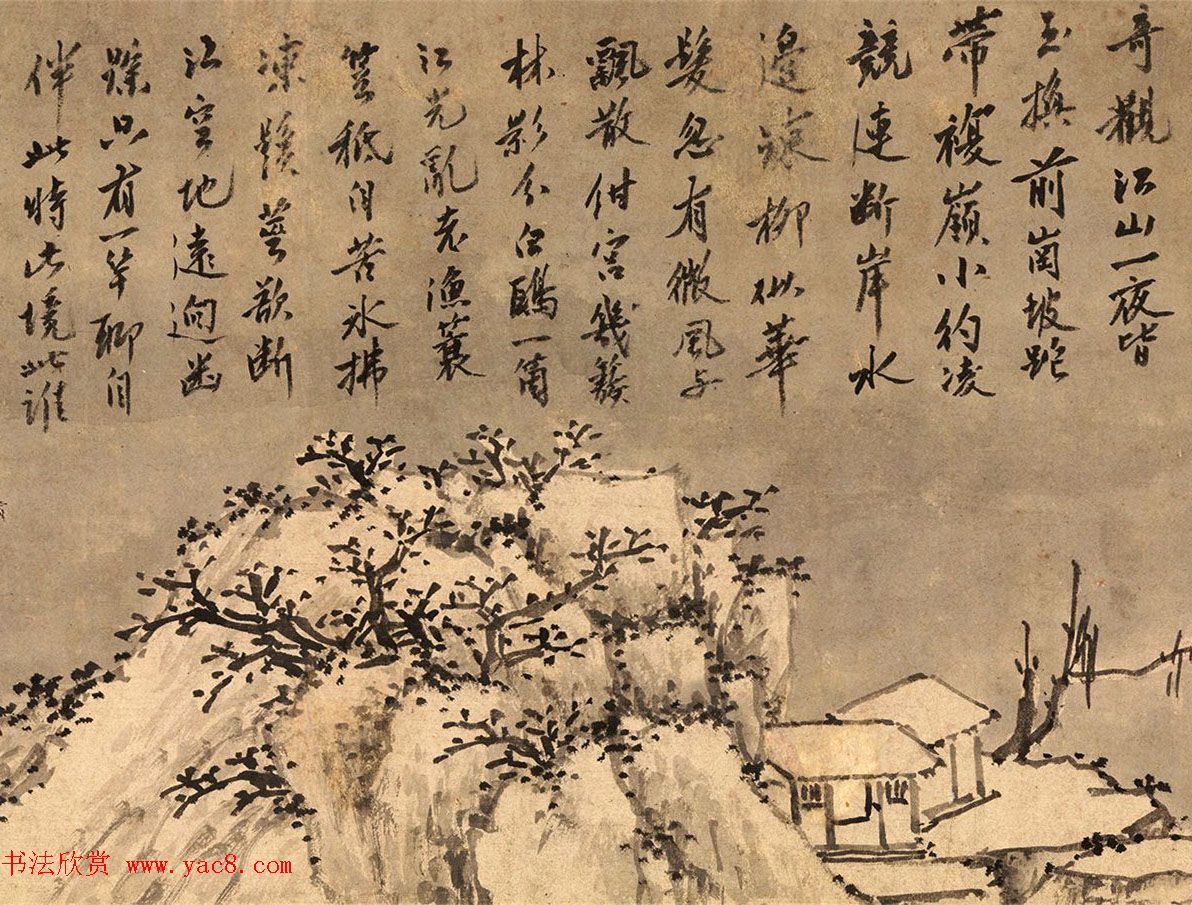 奇觀江山一夜皆
玉換前崗坡跎
帶複嶺小約凌
競連斷岸水
邊疎柳似華
髮忽有微風与
飄散紺宮幾簇
林影分白鷗一箇
江光亂老漁蓑
笠秪自苦冰拂
凍鬚莖欲斷
江空地遠逈幽
蹤只有一竿聊自
伴此時此境此誰
书法欣赏 www.yac8.com